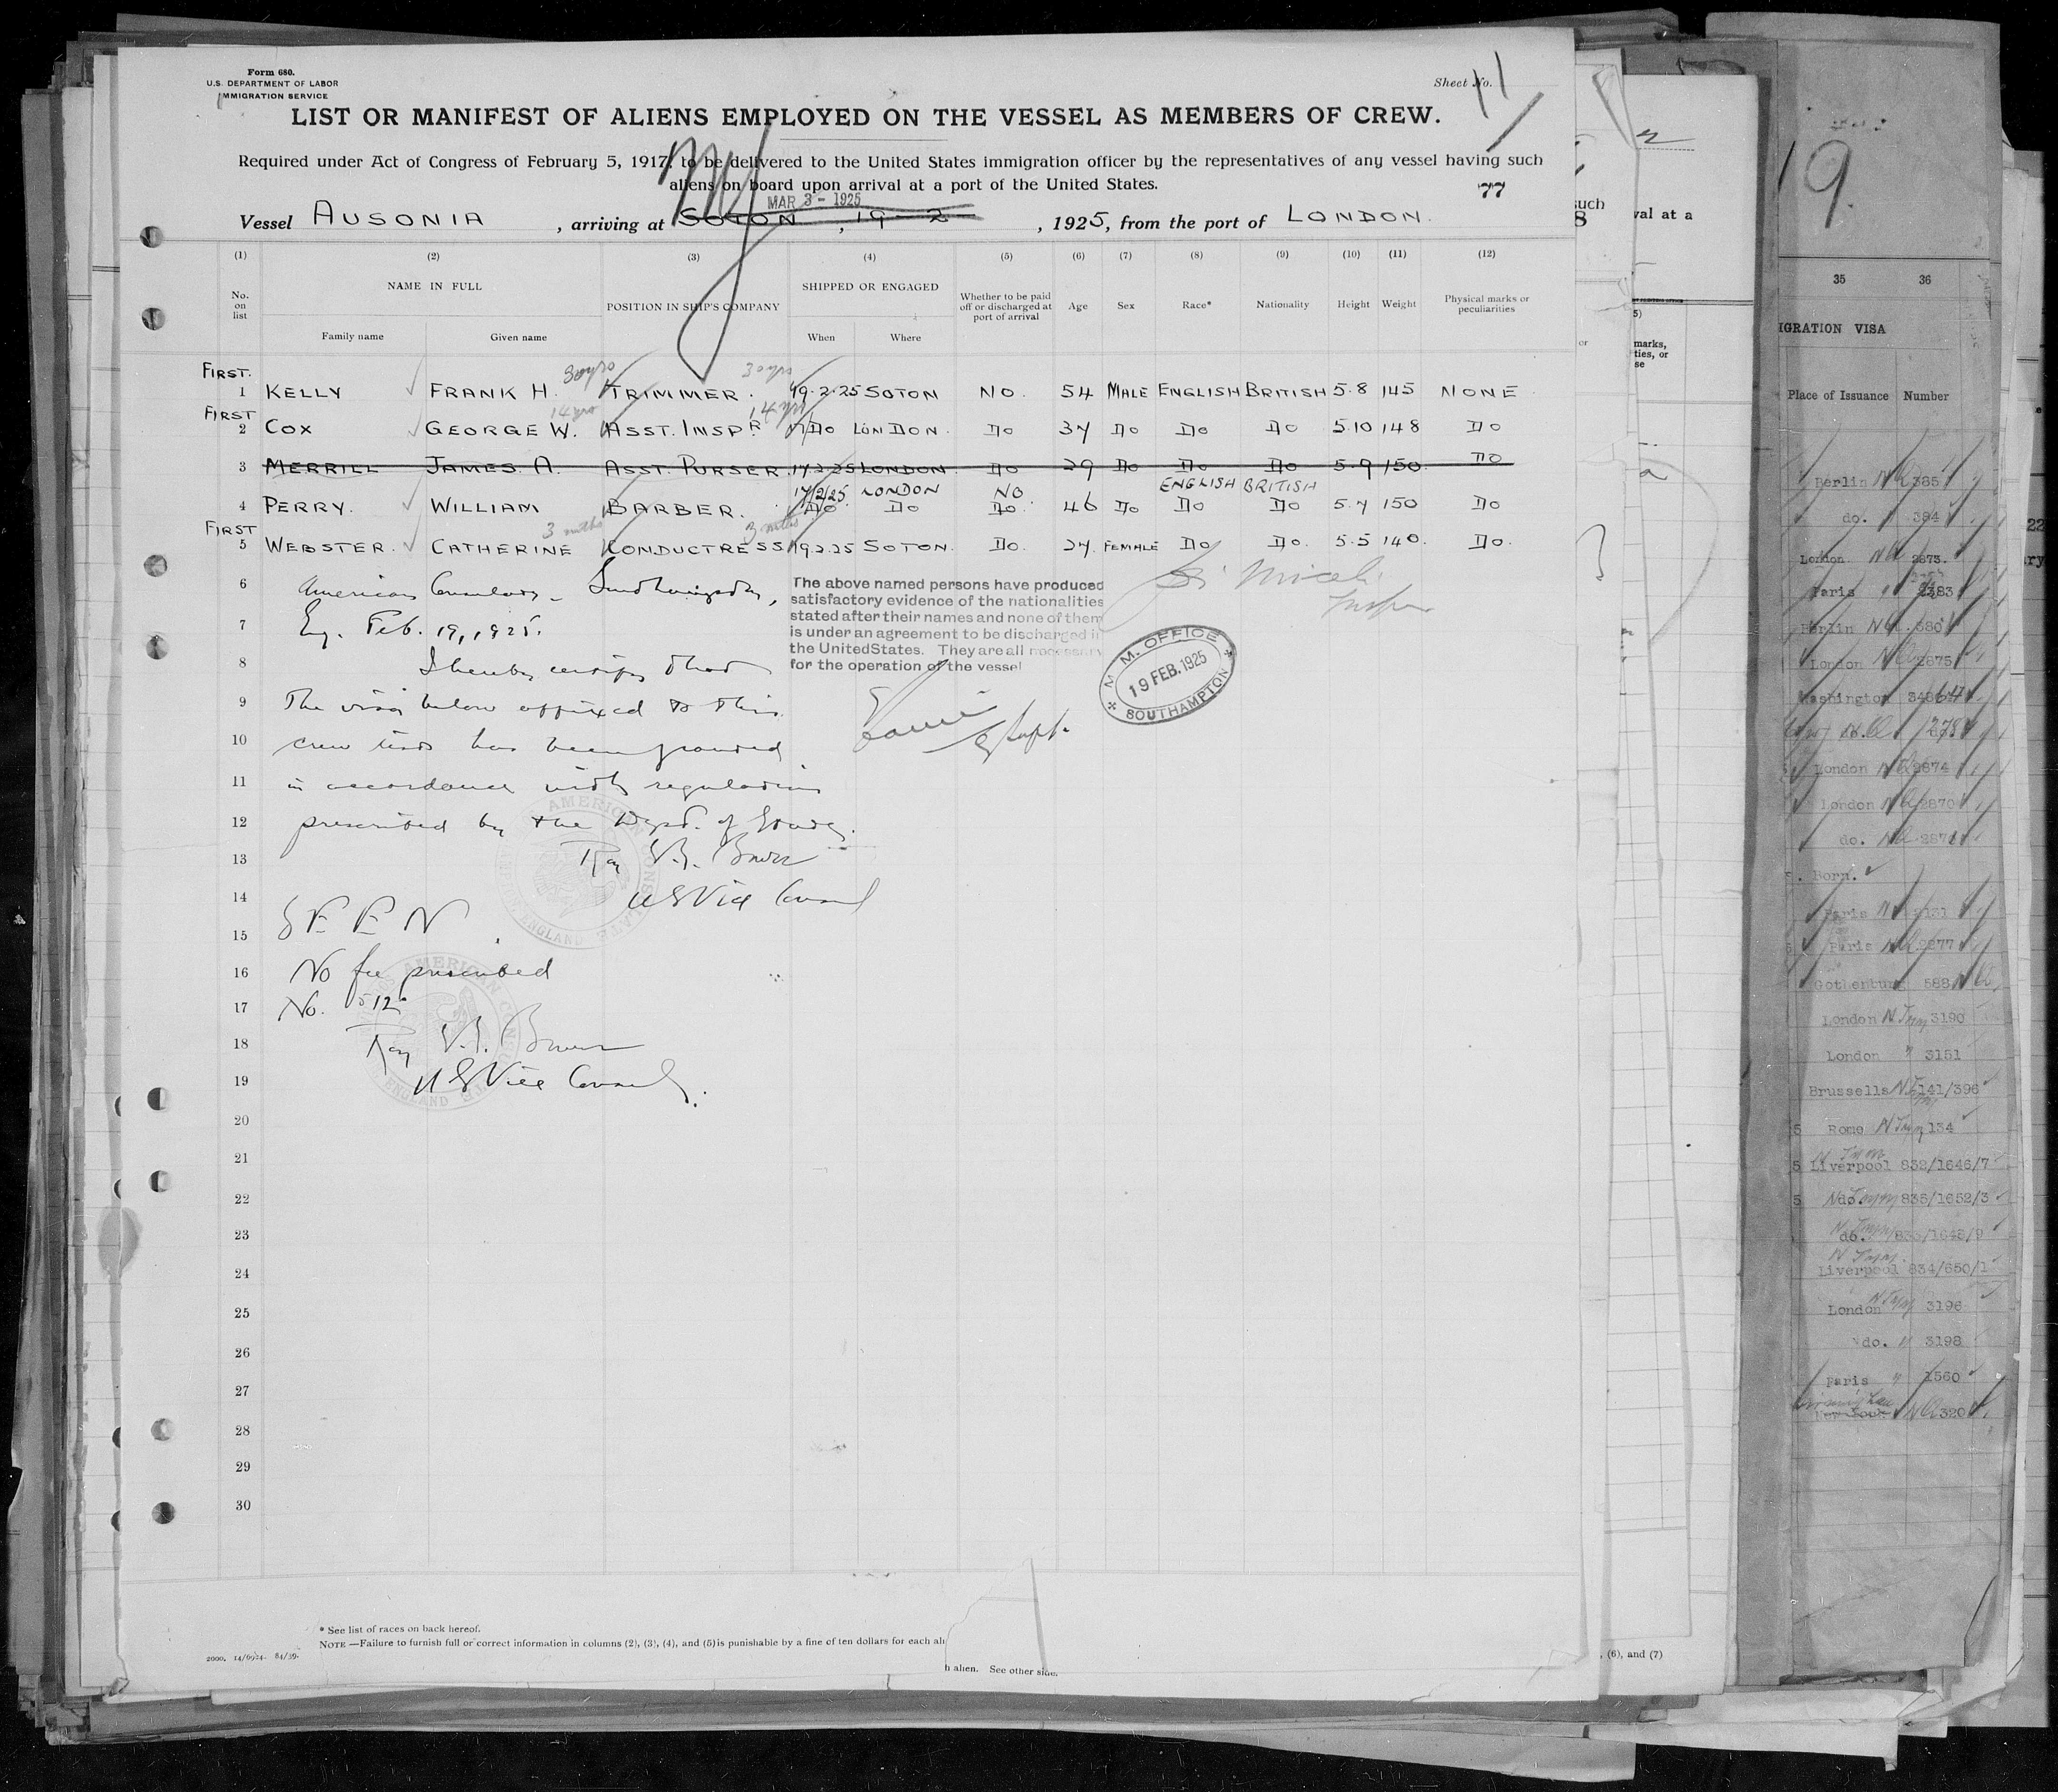 Form 680.
U.S. DEPARTMENT OF LABOR
IMMIGRATION SERVICE
Sheet No. 11
LIST OR MANIFEST OF ALIENS EMPLOYED ON THE VESSEL AS MEMBERS OF CREW.
Required under Act of Congress of February 5, 1917, to be delivered to the United States immigration officer by the representatives of any vessel having such
aliens on board upon arrival at a port of the United States.
77
MAR 3 - 1925
Vessel AUSONIA, arriving at SOTON, 19-2-, 1925, from the port of LONDON.
(1) (2) (3) (4) (5) (6) (7) (8) (9) (10) (11) (12)
No. on list NAME IN FULL POSITION IN SHIP'S COMPANY SHIPPED OR ENGAGED Whether to be paid off or discharged at port of arrival Age Sex Race* Nationality Height Weight Physical marks or peculiarities
Family name Given name When Where
FIRST.
1 KELLY FRANK H. TRIMMER. 19.2.25 SOTON NO. 54 MALE ENGLISH BRITISH 5.8 145 NONE
FIRST
2 COX GEORGE W. ASST. INSPR. DO LONDON. DO 37 DO DO DO 5.10 148 DO
3 MERRILL JAMES A. ASST. PURSER. 17.2.25 LONDON. DO 29 DO DO DO 5.9 150. DO
17/2/25 LONDON NO ENGLISH BRITISH
4 PERRY. WILLIAM BARBER. DO DO DO 46 DO DO DO 5.7 150 DO
3 mths 3 mths
FIRST
5 WEBSTER. CATHERINE CONDUCTRESS 19.2.25 SOTON. DO. 27. FEMALE DO DO. 5.5 140. DO.
6 American Consulate, Southampton,
7 Eng. Feb. 19, 1925.
8 I hereby certify that
9 the visa below affixed to this
10 crew list has been granted
11 in accordance with regulations
12 prescribed by the Dept. of State.
13 Ray
14 US Vice Consul
15 SEEN
16 No fee prescribed
17 No. 512
18 Ray
19 US Vice Consul.
The above named persons have produced
satisfactory evidence of the nationalities
stated after their names and none of them
is under an agreement to be discharged in
the United States. They are all necessary
for the operation of the vessel
M. M. OFFICE
19 FEB. 1925
SOUTHAMPTON
20
21
22
23
24
25
26
27
28
29
30
* See list of races on back hereof.
NOTE.—Failure to furnish full or correct information in columns (2), (3), (4), and (5) is punishable by a fine of ten dollars for each ali
h alien. See other side.
2000. 14/6924. 84/39.
, (6), and (7)
such
8
val at a
marks,
ties, or
se
19.
35 36
IGRATION VISA
Place of Issuance Number
Berlin 385
do. 384
London 2873.
Paris 2383
Berlin 580
London 2875
Washington
London 2874
London 2870
do. 2871
Born.
Paris 3131
Paris 2277
Gothenburg 588
London 3190
London 3151
Brussells 141/396
Rome 134
Liverpool 832/1646/7
do. 835/1652/3
do. 833/1648/9
Liverpool 834/650/1
London 3196
do. 3198
Paris 1560
320